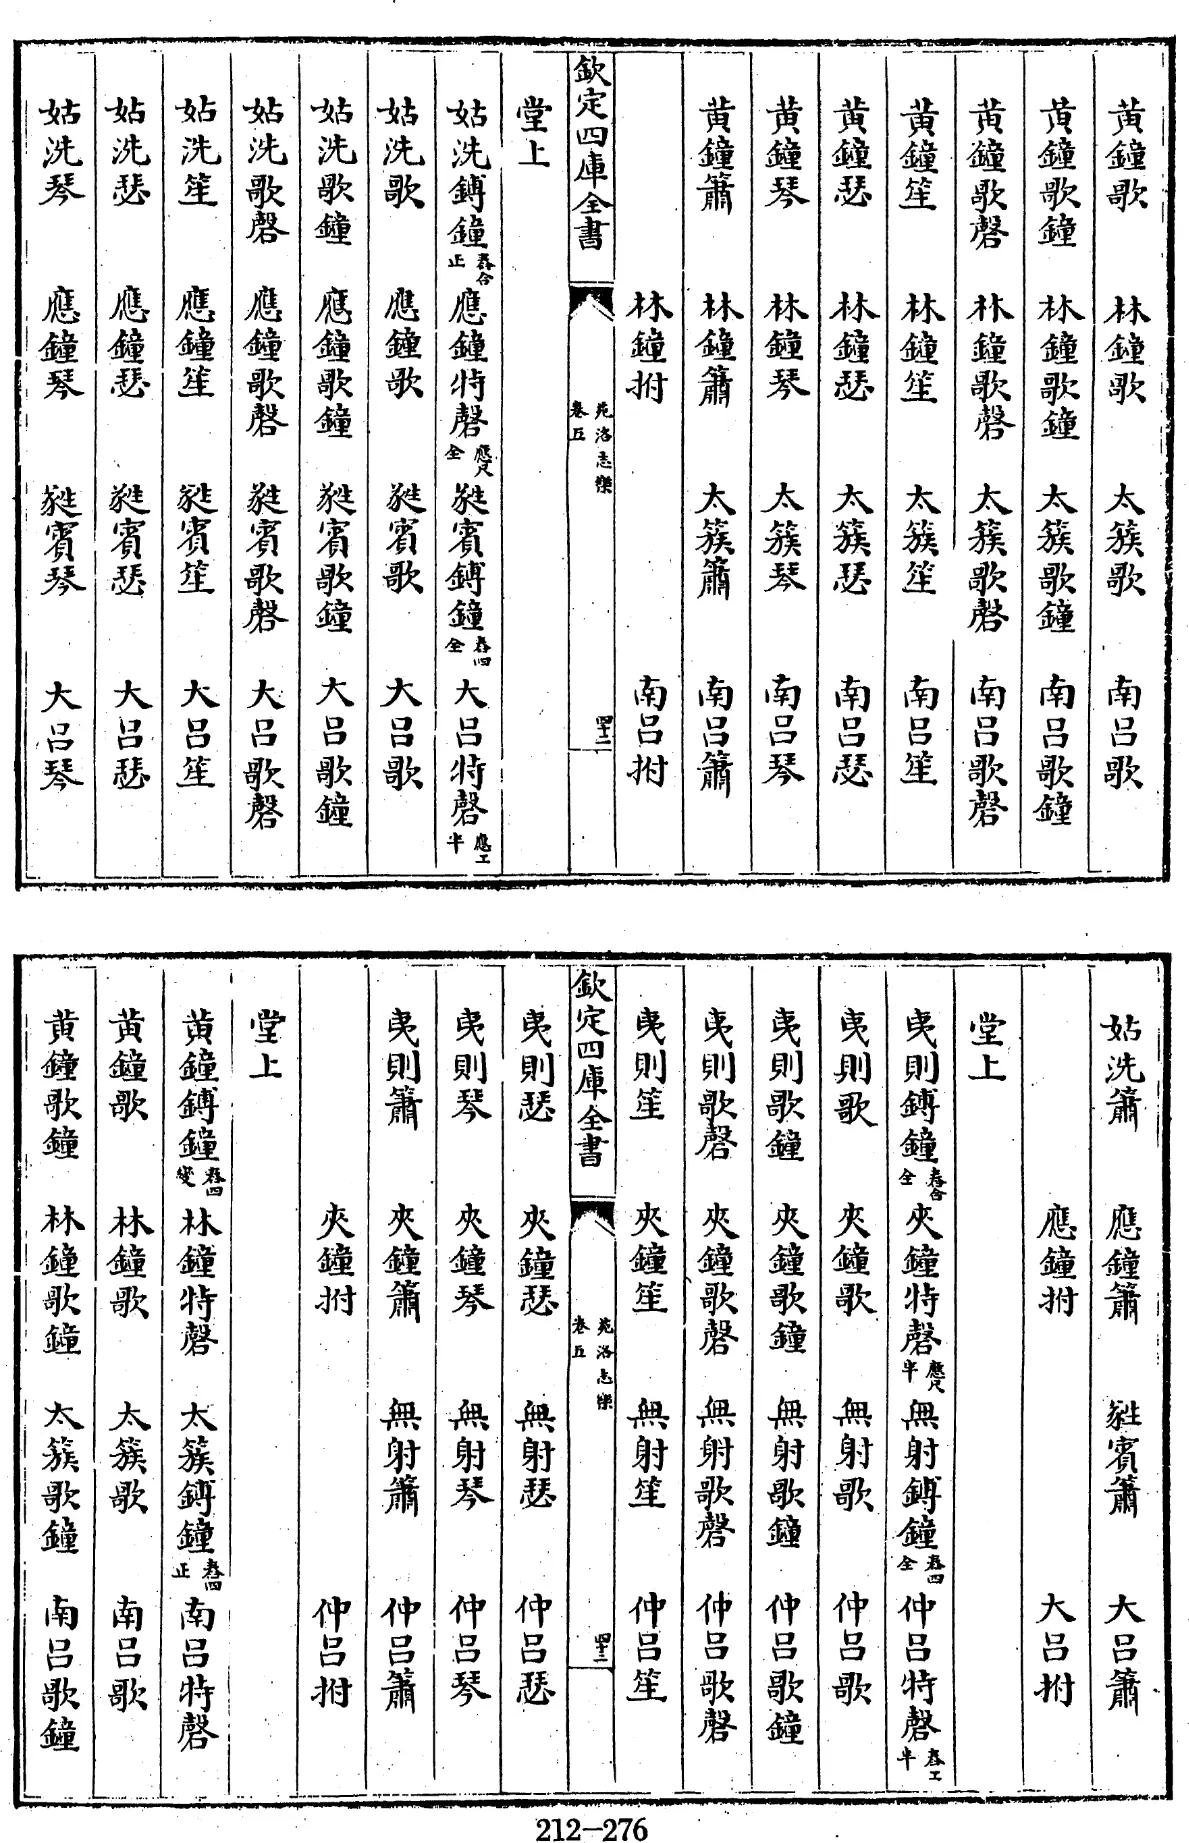 黃鐘歌 林鐘歌 太簇歌 南呂歌
黃鐘歌鐘 林鐘歌鐘 太簇歌鐘 南呂歌鐘
黃鐘歌磬 林鐘歌磬 太簇歌磬 南呂歌磬
黃鐘笙 林鐘笙 太簇笙 南呂笙
黃鐘瑟 林鐘瑟 太簇瑟 南呂瑟
黃鐘琴 林鐘琴 太簇琴 南呂琴
黃鐘簫 林鐘簫 太簇簫 南呂簫
林鐘拊 南呂拊
欽定四庫全書 苑洛志樂 卷五 四十二
堂上
姑洗鎛鐘 舂合正 應鐘特磬 應尺全 蕤賓鎛鐘 舂四全 大呂特磬 應工半
姑洗歌 應鐘歌 蕤賓歌 大呂歌
姑洗歌鐘 應鐘歌鐘 蕤賓歌鐘 大呂歌鐘
姑洗歌磬 應鐘歌磬 蕤賓歌磬 大呂歌磬
姑洗笙 應鐘笙 蕤賓笙 大呂笙
姑洗瑟 應鐘瑟 蕤賓瑟 大呂瑟
姑洗琴 應鐘琴 蕤賓琴 大呂琴
姑洗簫 應鐘簫 蕤賓簫 大呂簫
應鐘拊 大呂拊
堂上
夷則鎛鐘 舂合全 夾鐘特磬 應尺半 無射鎛鐘 舂四全 仲呂特磬 舂工半
夷則歌 夾鐘歌 無射歌 仲呂歌
夷則歌鐘 夾鐘歌鐘 無射歌鐘 仲呂歌鐘
夷則歌磬 夾鐘歌磬 無射歌磬 仲呂歌磬
夷則笙 夾鐘笙 無射笙 仲呂笙
欽定四庫全書 苑洛志樂 卷五 四十三
夷則瑟 夾鐘瑟 無射瑟 仲呂瑟
夷則琴 夾鐘琴 無射琴 仲呂琴
夷則簫 夾鐘簫 無射簫 仲呂簫
夾鐘拊 仲呂拊
堂上
黃鐘鎛鐘 舂四變 林鐘特磬 太簇鎛鐘 舂四正 南呂特磬
黃鐘歌 林鐘歌 太簇歌 南呂歌
黃鐘歌鐘 林鐘歌鐘 太簇歌鐘 南呂歌鐘
212-276